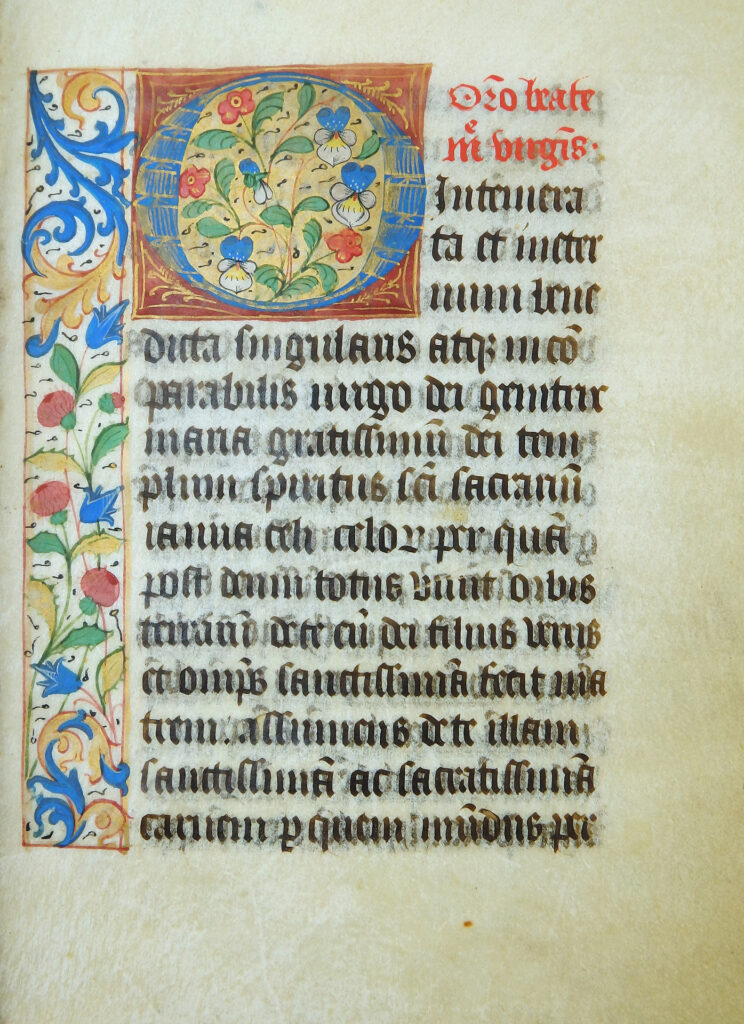 Or̄o beate
mͤ virgīs·
O Intemera
ta et ineter
num bene
dicta singularis atqꝫ incō
parabilis virgo dei genitrix
maria gratissimū dei tem
plum spiritus sc̄i sacrariū
ianua celi celoꝝ per quā
post deum totus viuit orbis
terrarū de te cū dei filius verus
et omp̄s sanctissimā fecit ma
trem. assumens de te illam
sanctissimā ac sacratissimā
carnem ꝑ quem mūdus per